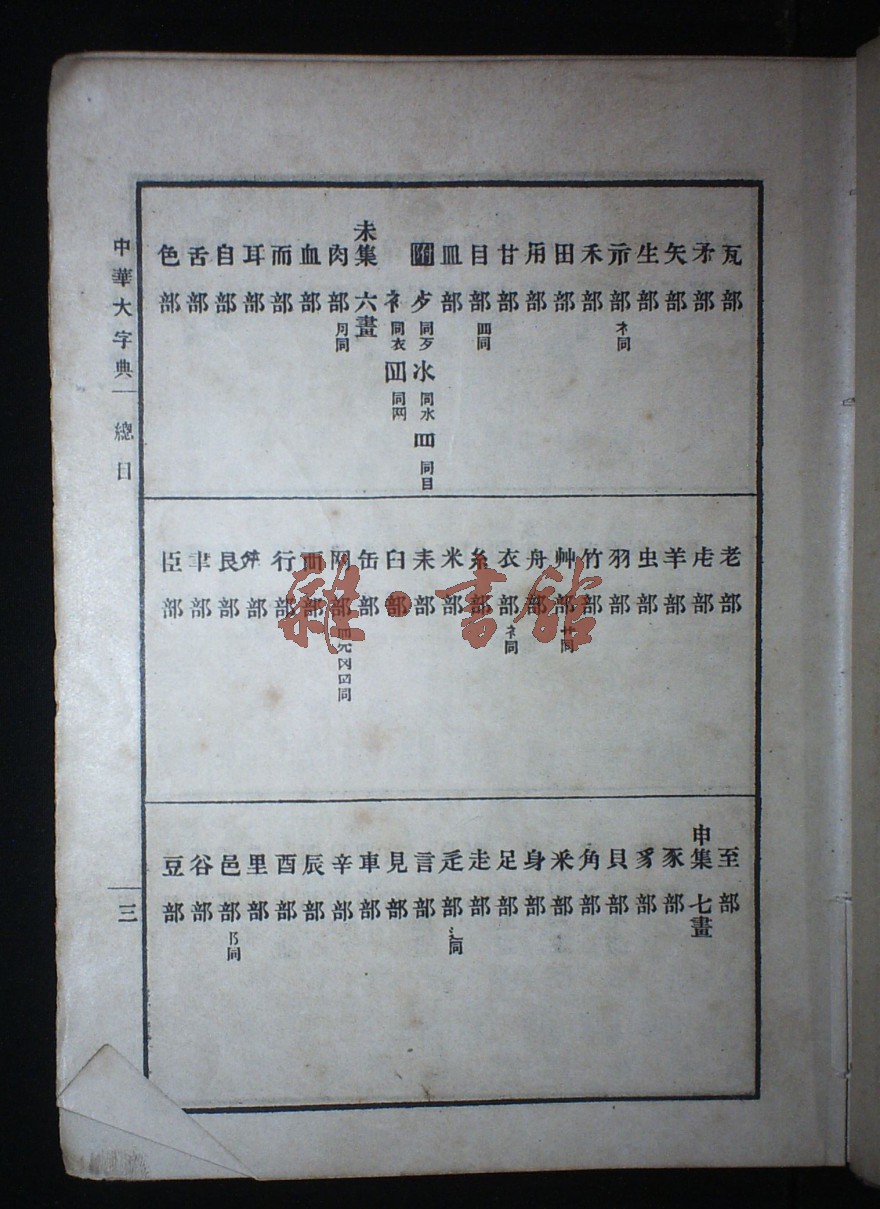 瓦部
矛部
矢部
生部
示部 礻同
禾部
田部
用部
甘部
目部 罒同
皿部
附 歺 同歹 氺 同水 罒 同目
衤 同衣 𦉰 同网
未集 六畫
肉部 月同
血部
而部
耳部
自部
舌部
色部
老部
虍部
羊部
虫部
羽部
竹部
艸部 艹同
舟部
衣部 衤同
糸部
米部
耒部
臼部
缶部
网部
襾部
行部
舛部
艮部
聿部
臣部
至部
申集 七畫
豕部
豸部
貝部
角部
釆部
身部
足部
走部
辵部 辶同
言部
見部
車部
辛部
辰部
酉部
里部
邑部 阝同
谷部
豆部
中華大字典 總目
三
雜·書館